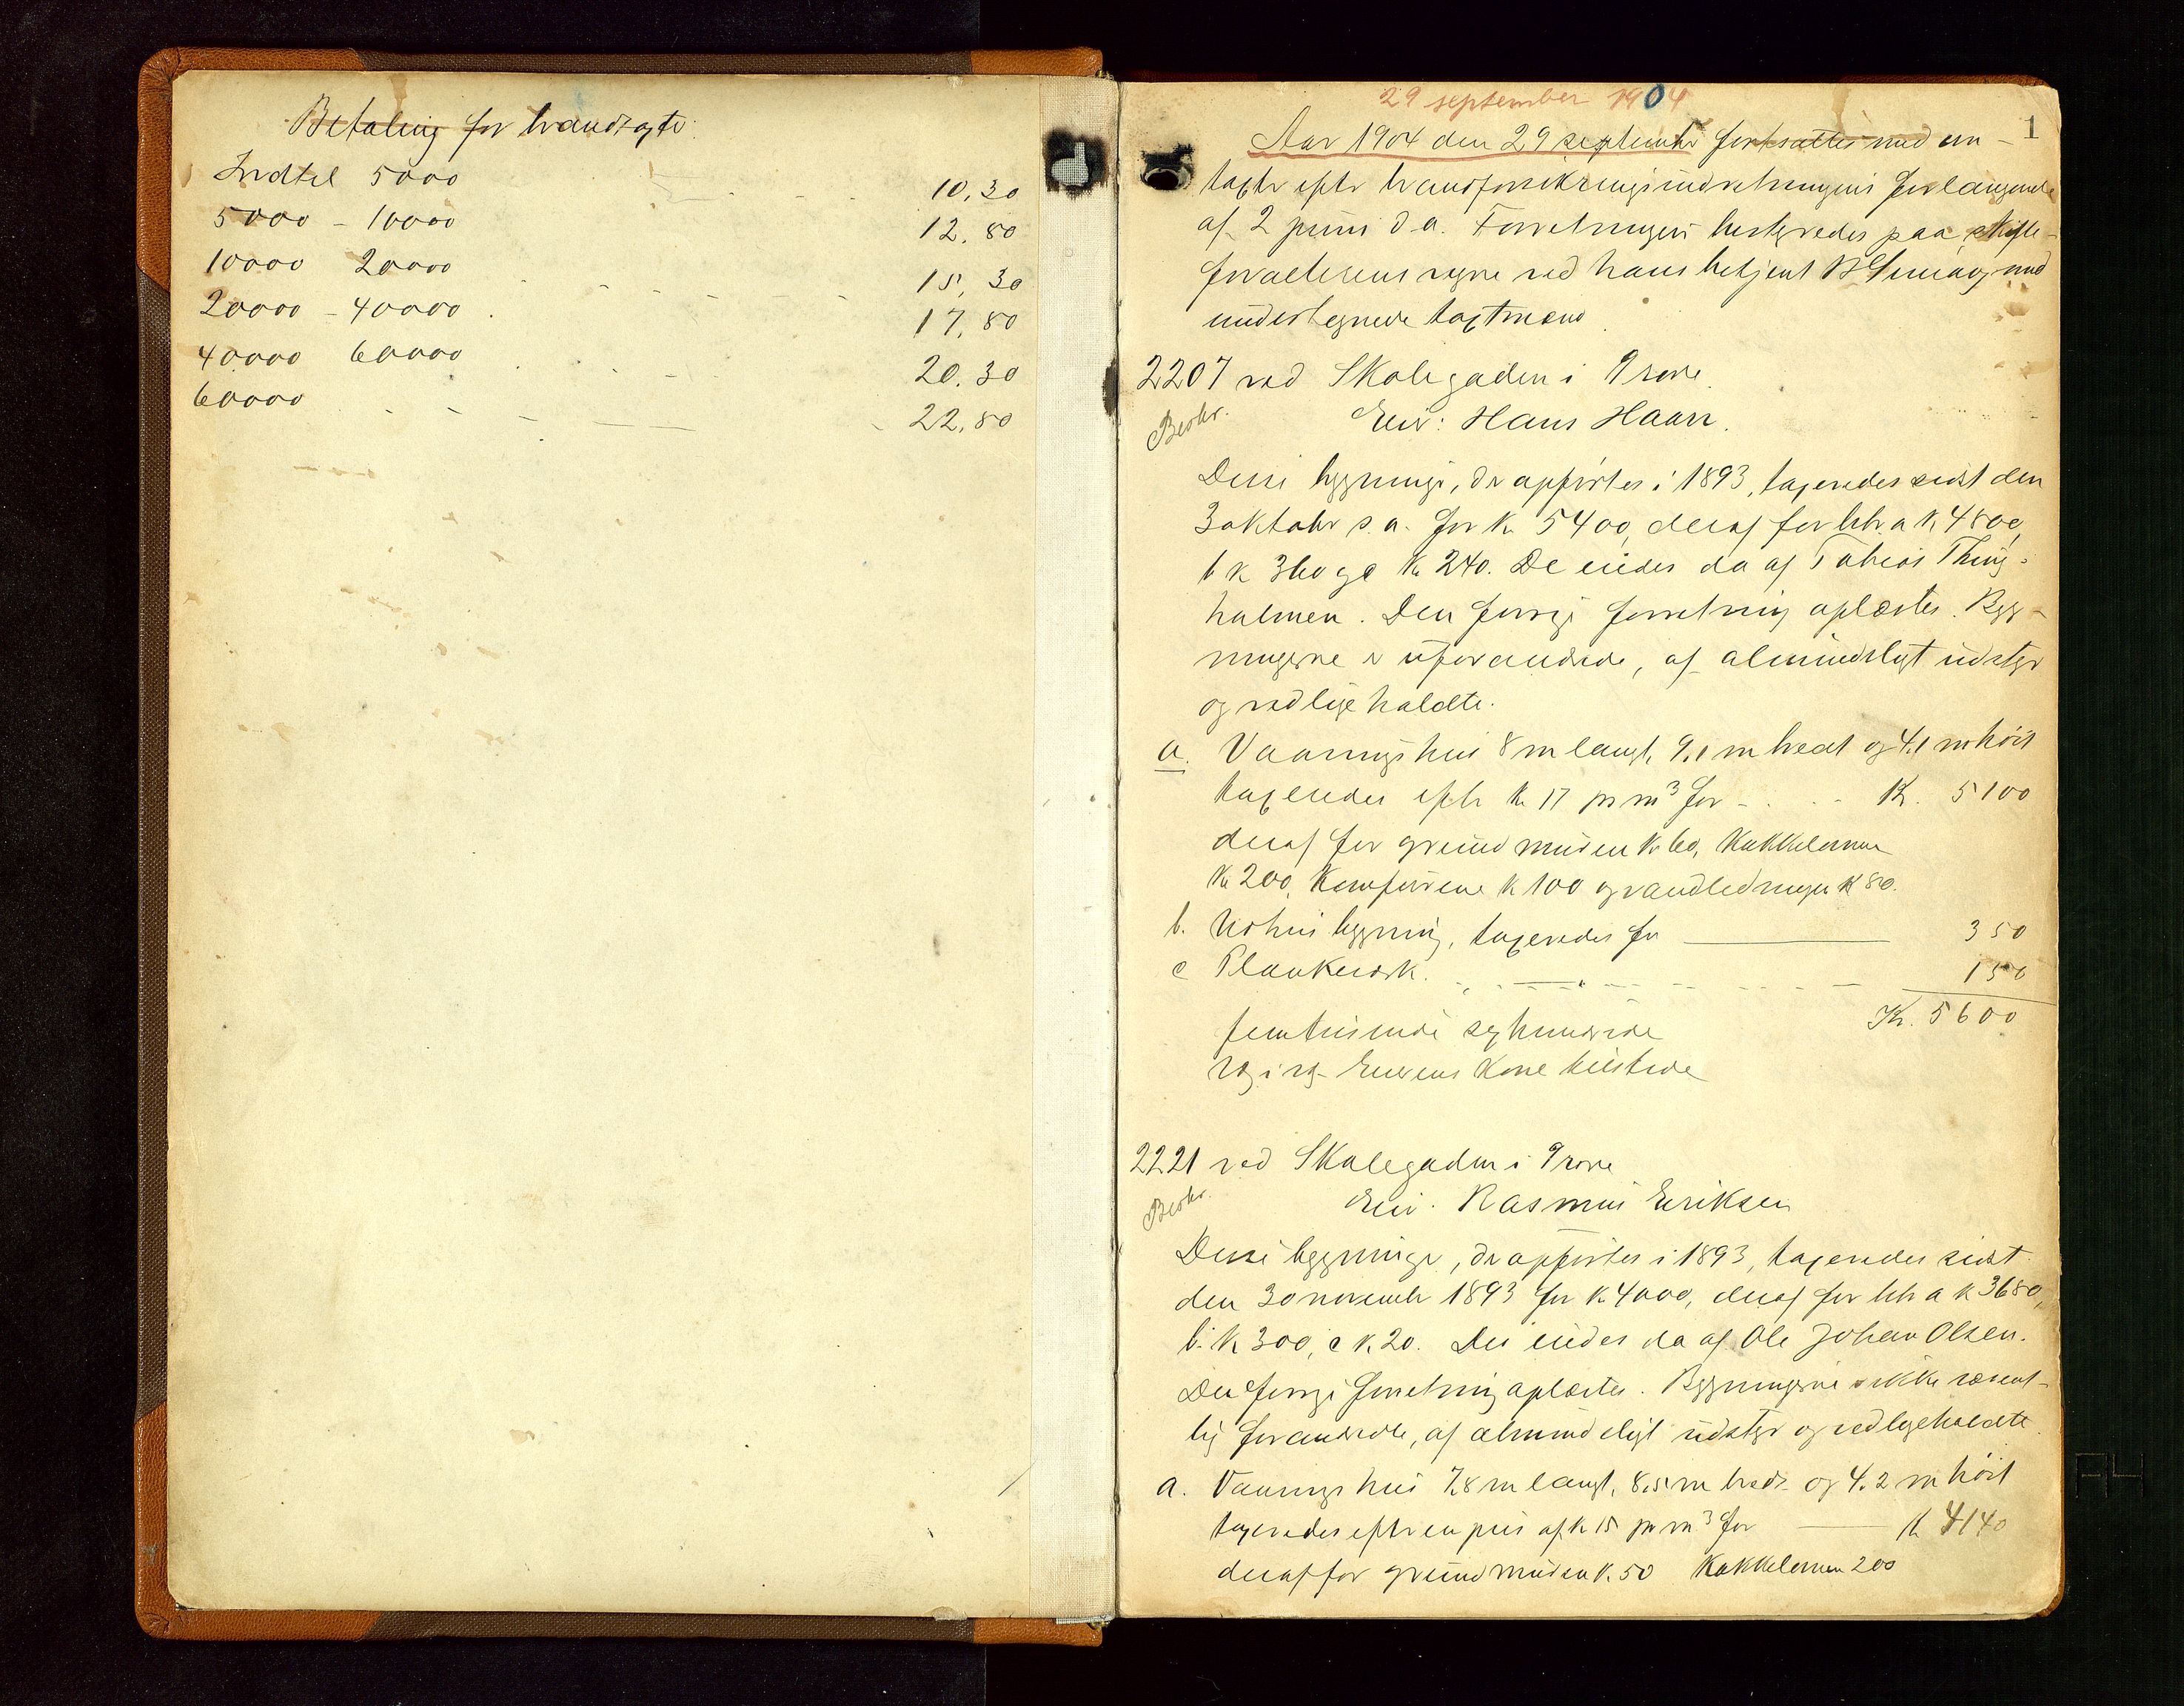 Betaling for brandtagster
Indtil 5000 10,30
5000 - 10000 12,80
10000 20000 15,30
20000 - 40000 17,80
40000 60000 20,30
60000 22,80
29 september 1904
1
Aar 1904 den 29 september fortsattes med om-
taxter efter brandforsikringsindretningens forlangende
af 2 juni d.a. Forretningen bestyredes paa
ved hans betjent med
undertegnede taxtmænd.
2207 ved Skolegaden i
Beskr.
Eier: Hans Haarr.
Disse bygninger, der opførtes i 1893, taxeredes sidst den
3 oktober s.a. for K. 5400, deraf for litr. a K. 4800,
b K 360 og c K. 240. De eiedes da af Tobias Thing-
holmen. Den forrige forretning oplæstes. Byg-
ningerne er uforandrede, af almindeligt udstyr
og vedligeholdte.
a. Vaaningshus 8 m langt, 9.1 m bredt og 4.1 m høit
taxeredes efter K 17 pr m³ for K. 5100
deraf for grundmuren K. 60, Kakkelovnene
K. 200, Komfurene K 100 og vandledningen K 80.
b. Udhusbygning, taxeredes for 350
c Plankeværk 150
Kr. 5600
femtusinde sexhundrede
Eierens Kone tilstede
2221 ved Skolegaden i
Beskr.
Eier. Rasmus Eriksen
Disse bygninger, der opførtes i 1893, taxeredes sidst
den 30 november 1893 for K. 4000, deraf for litr a K 3680,
b. K 300, c K. 20. De eiedes da af Ole Johan Olsen.
Den forrige forretning oplæstes. Bygningerne er ikke væsent-
lig forandrede, af almindeligt udstyr og vedligeholdte
a. Vaaningshus 7,8 m langt, 8,5 m bredt og 4.2 m høit
taxeredes efter en pris af K 15 pr m³ for K 4140
deraf for grundmuren K. 50 Kakkelovnen 200